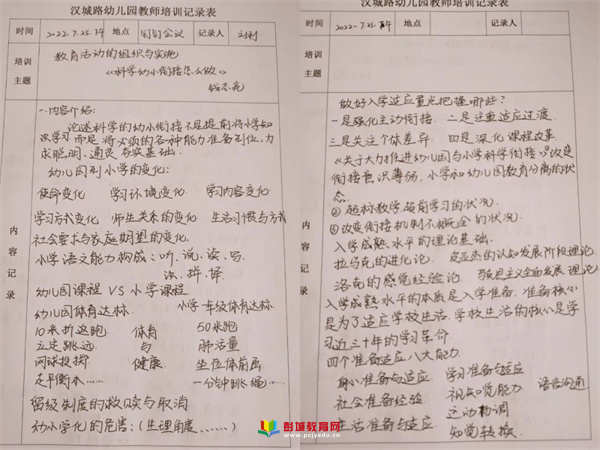 汉城路幼儿园教师培训记录表
时间 2022.7.25.下午 地点 钉钉会议 记录人
培训主题
教育活动的组织与实施
《科学幼小衔接怎么做》
内容记录
一.内容介绍:
论述科学的幼小衔接不是提前将小学知
识学习而是将必须的各种能力准备到位,为
求聪明、通灵 夯实基础.
幼儿园到小学的变化:
使命变化 学习环境变化 学习内容变化
学习方式变化 师生关系的变化 生活习惯与方式
社会要求与家庭期望的变化.
小学语文能力构成:听、说、读、写、
幼儿园课程 VS 小学课程
幼儿园体育达标 小学一年级体育达标
10米折返跑 体育 50米跑
立定跳远 与 肺活量
网球投掷 健康 坐位体前屈
走平衡木…… 一分钟跳绳……
留级制度的救赎与取消
幼小学化的危害:(生理角度、……)
汉城路幼儿园教师培训记录表
时间 2022-7.25. 地点 记录人
培训主题
内容记录
做好入学适应重点把握哪些?
一是强化主动衔接. 二是注重适应过渡.
三是关注个体差异 四是深化课程改革
《关于大力推进幼儿园与小学科学衔接》①改变
衔接意识薄弱,小学和幼儿园教育分离的状
态
② 超标教学超前学习的状况.
③改变衔接机制不健全的状况.
入学成熟水平的理论基础.
拉马克的进化论. 皮亚杰的认知发展阶段理论
洛克的感觉经验论
入学成熟水平的本质是入学准备.准备核心
是为了适应学校生活.学校生活的核心是学
习近三十年的学习革命
四个准备适应八大能力
身心准备与适应 学习准备与适应
社会准备经验. 视知觉能力 语言沟通
生活准备与适应. 运动协调
知觉转换.
彭城教育网
www.pcjyedu.cn